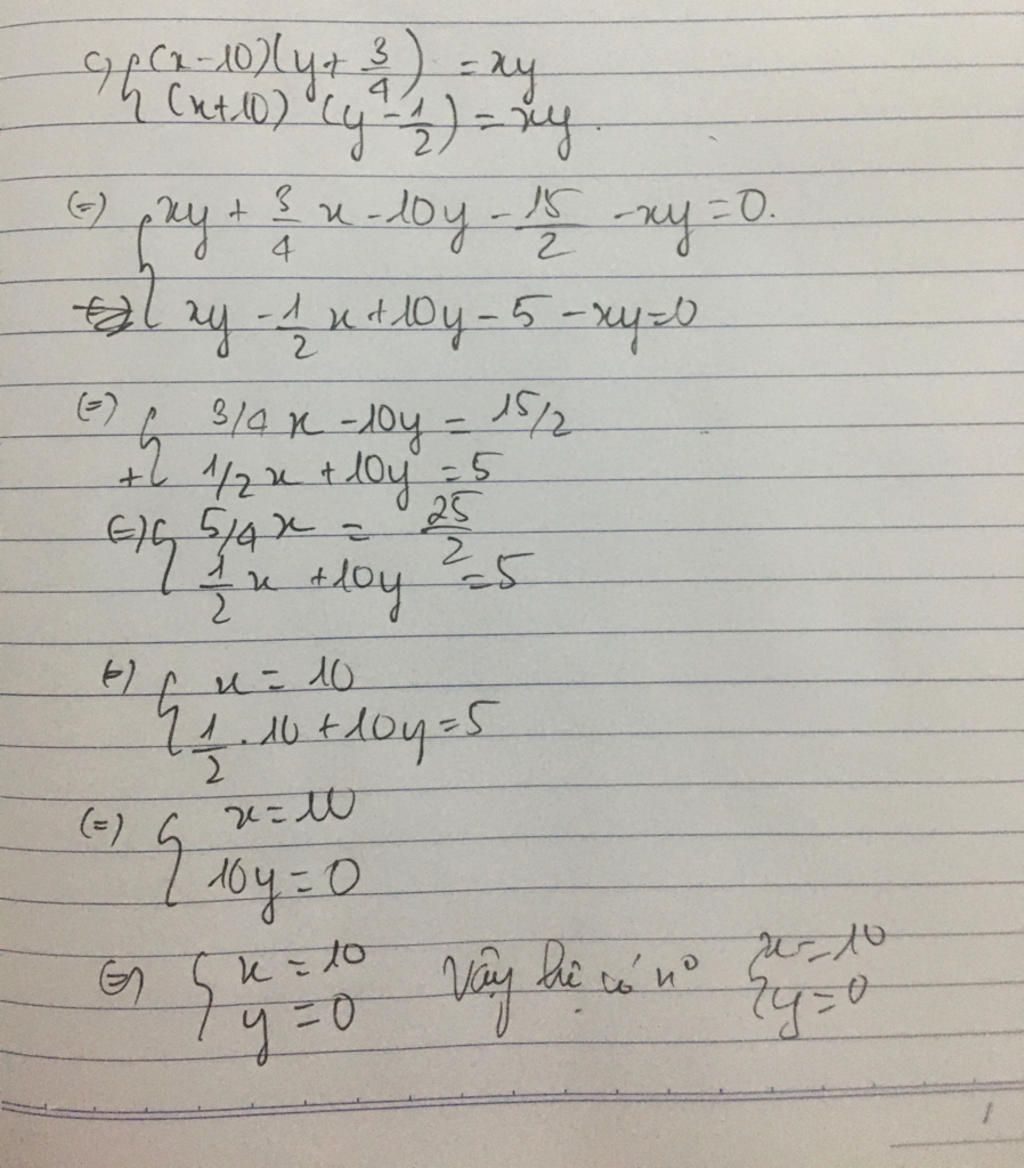 c) { (x-10)(y+ 3/4) = xy
(x+10) (y - 1/2) = xy.
(=) { xy + 3/4 x - 10y - 15/2 - xy = 0.
xy - 1/2 x + 10y - 5 - xy = 0
(=) { 3/4 x - 10y = 15/2
+ 1/2 x + 10y = 5
(=) { 5/4 x = 25/2
1/2 x + 10y = 5
(=) { x = 10
1/2 . 10 + 10y = 5
(=) { x = 10
10y = 0
(=) { x = 10
y = 0
Vậy hệ có n° { x = 10
y = 0